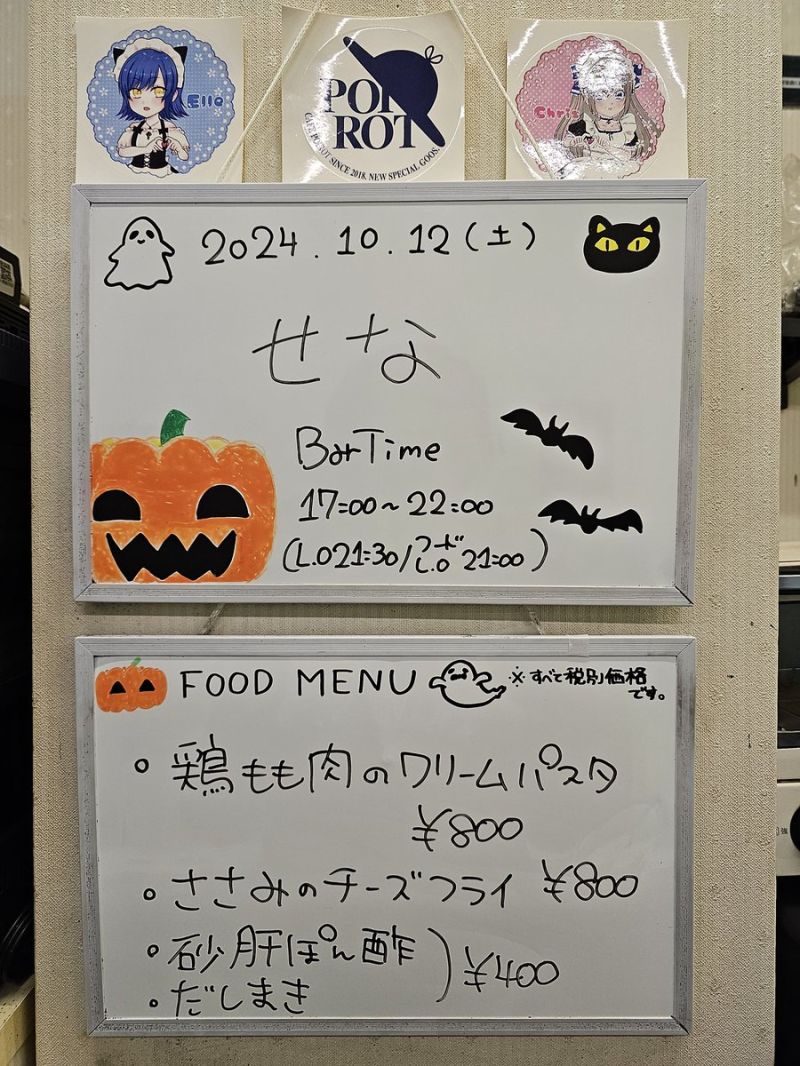 Ella
POIROT
CAFE POIROT SINCE 2018. NEW SPECIAL GOOS.
Chris
2024.10.12(土)
せな
BarTime
17:00~22:00
(L.O21:30/フードL.O 21:00)
FOOD MENU ※すべて税別価格です。
○鶏もも肉のクリームパスタ
¥800
○ささみのチーズフライ ¥800
○砂肝ぽん酢
○だしまき
)¥400